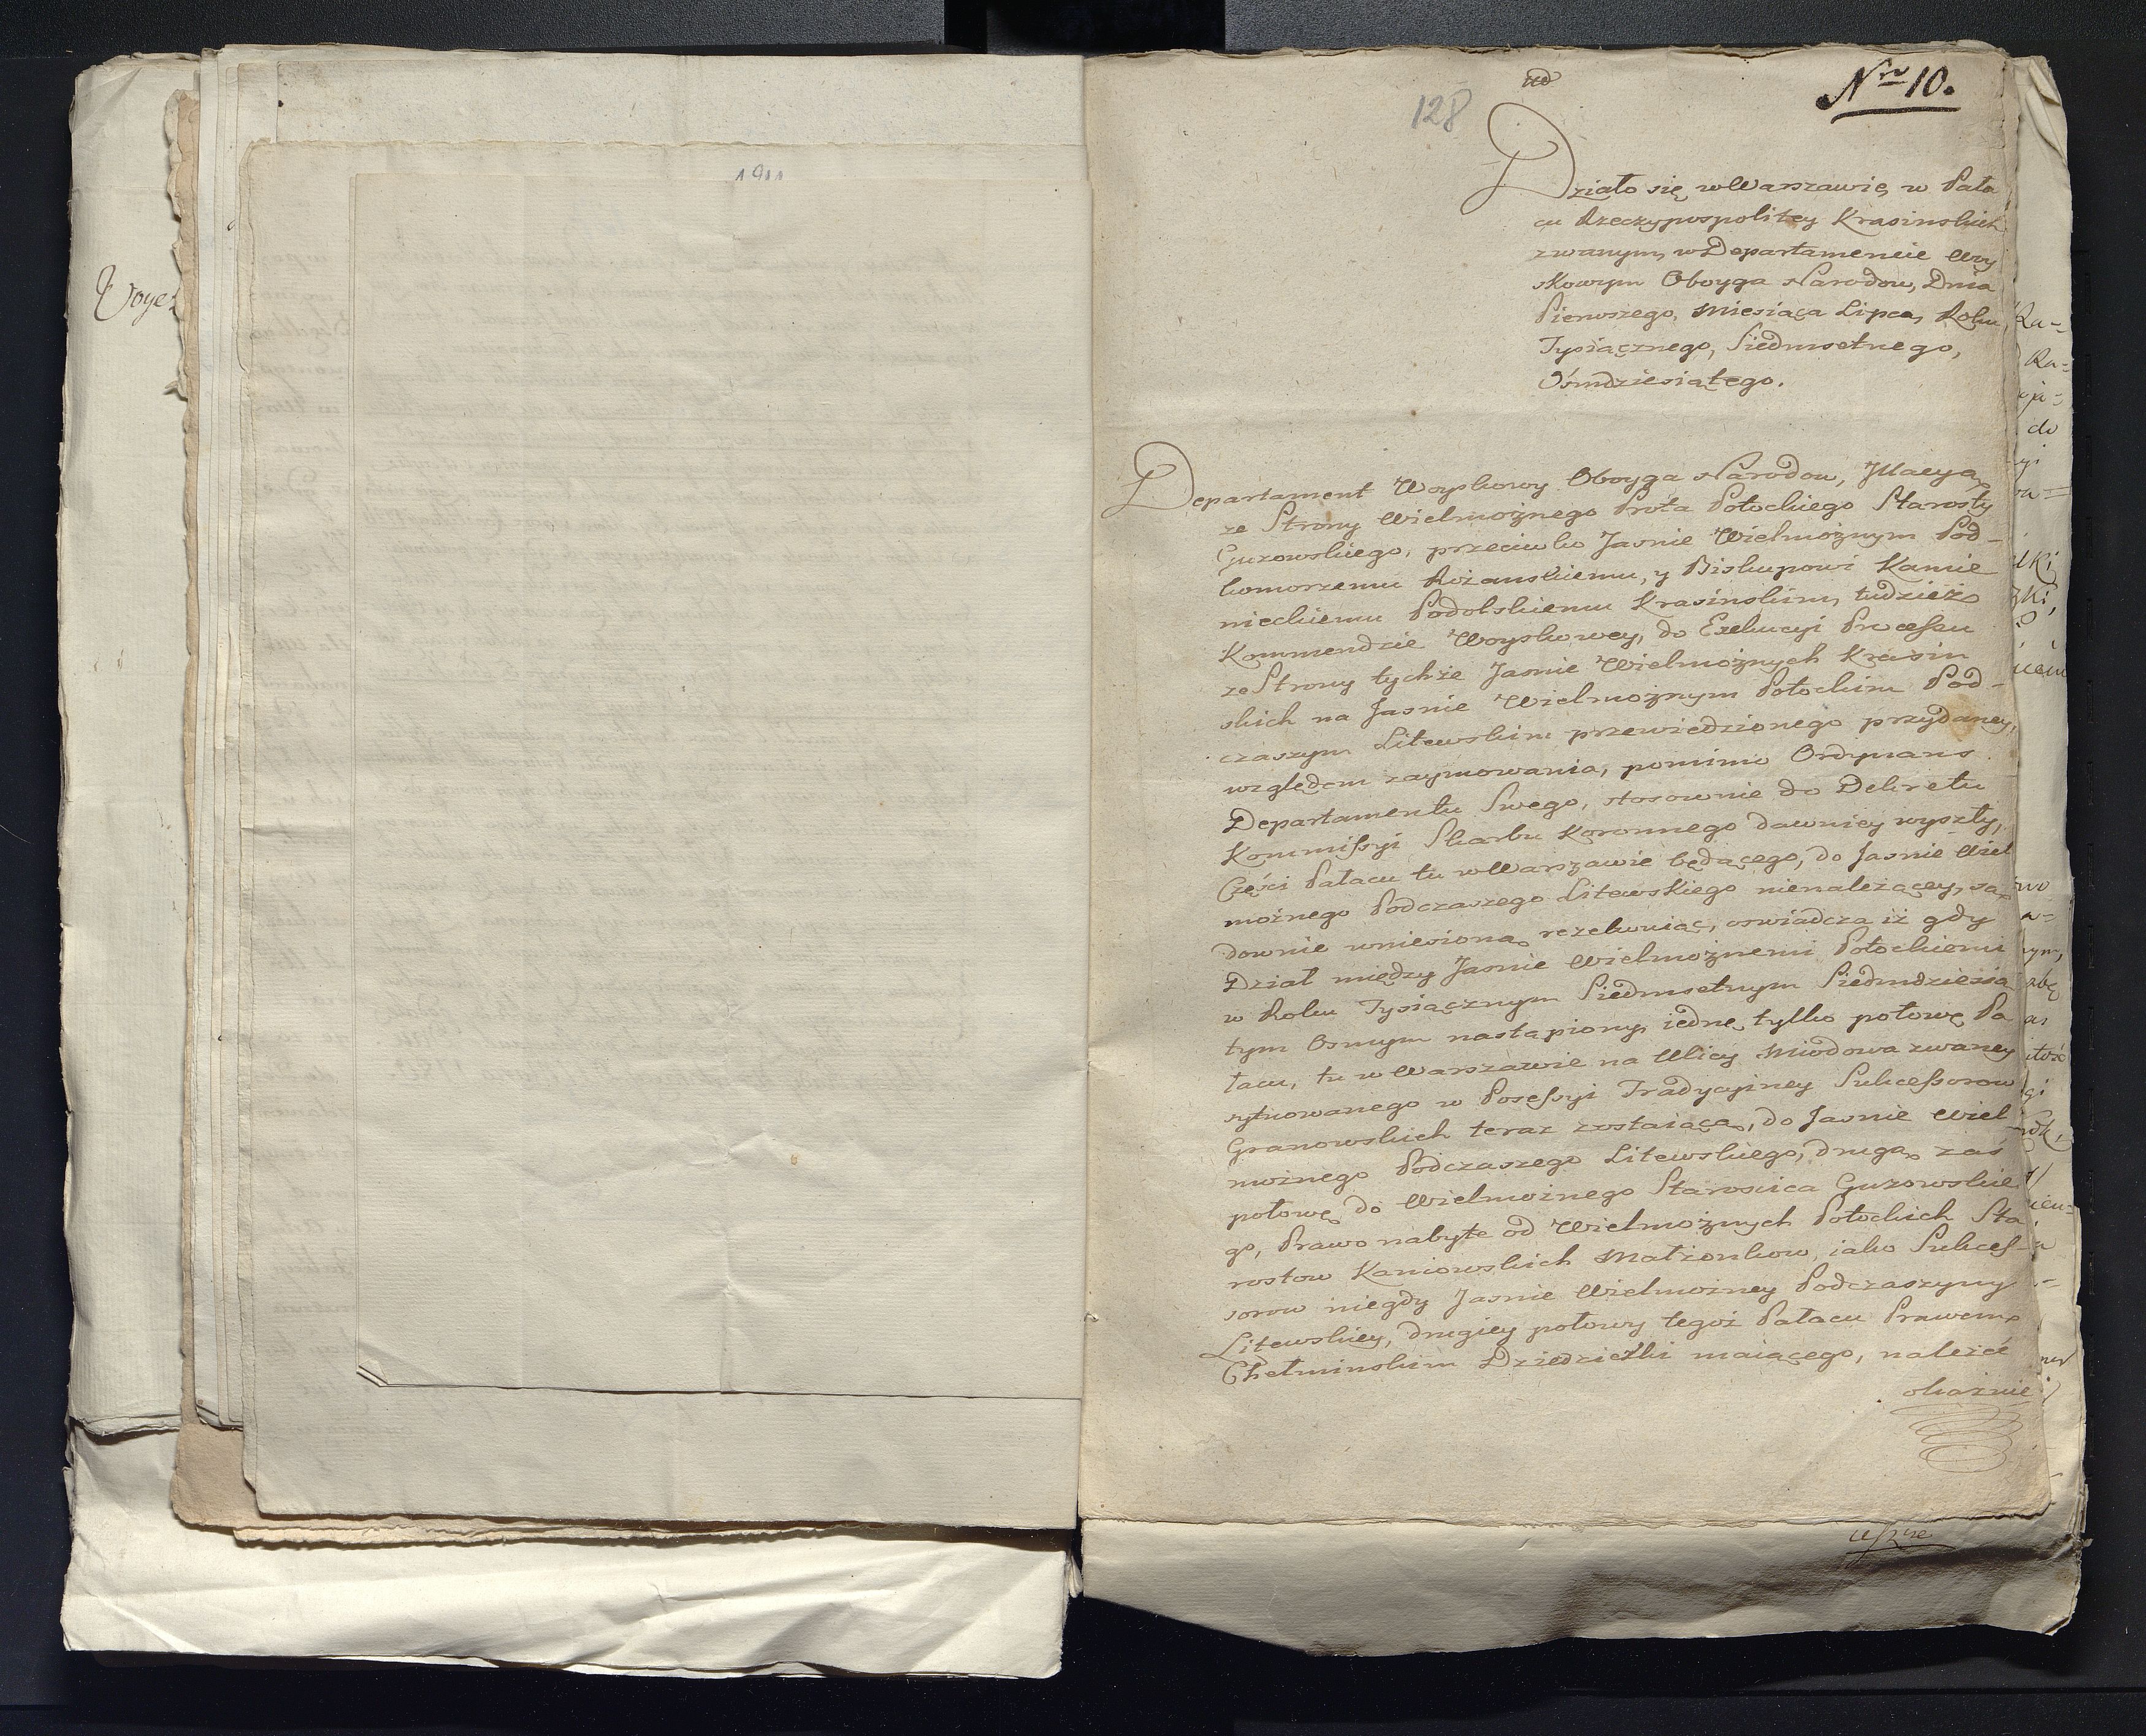 Nro 10.
128
Działo się w Warszawie w Pała
cu Rzeczypospolitey Krasinskich
zwanym, w Departamencie Woy
skowym Oboyga Narodow, Dnia
Pierwszego, Miesiąca Lipca, Roku
Tysiącznego, Siedmsetnego,
Ośmdziesiątego.
Departament Woyskowy Oboyga Narodow, Illacyą
ze Strony Wielmożnego Prota Potockiego Starosty
Guzowskiego, przeciwko Jasnie Wielmożnym Pod-
komorzemu Rożanskiemu, y Biskupowi Kamie
nieckiemu Podolskiemu Krasinskim, tudzież
Kommendzie Woyskowey, do Exekucyi Processu
ze Strony tychże Jasnie Wielmożnych Krasin
skich na Jasnie Wielmożnym Potockim Pod-
czaszym Litewskim przewiedzionego przydaney,
względem zaymowania, pomimo Ordynans
Departamentu Swego, stosownie do Dekretu
Kommissyi Skarbu Koronnego dawniey wyszły,
Częsci Pałacu tu w Warszawie będącego, do Jasnie Wiel
możnego Podczaszego Litewskiego nienależącey, są
downie wniesioną rezolwuiąc, oswiadcza iż gdy
Dział między Jasnie Wielmożnemi Potockiemi
w Roku Tysiącznym Siedmsetnym Siedmdziesią
tym Osmym nastąpiony, iednę tylko połowę Pa
łacu, tu w Warszawie na Ulicy Miodowa zwaney
sytuowanego w Possessyi Tradycyiney Sukcessorow
Granowskich teraz zostaiącą, do Jasnie Wiel
możnego Podczaszego Litewskiego, drugą zaś
połowę do Wielmożnego Starościca Guzowskie
go, Prawo nabyte od Wielmożnych Potockich Sta
rostow Kaniowskich Małżonkow, iako Sukces-
sorow niegdy Jasnie Wielmożney Podczaszyny
Litewskiey, drugiey połowy tegoż Pałacu Prawem
Chełminskim Dziedziczki maiącego, należeć
okaznie
Woye